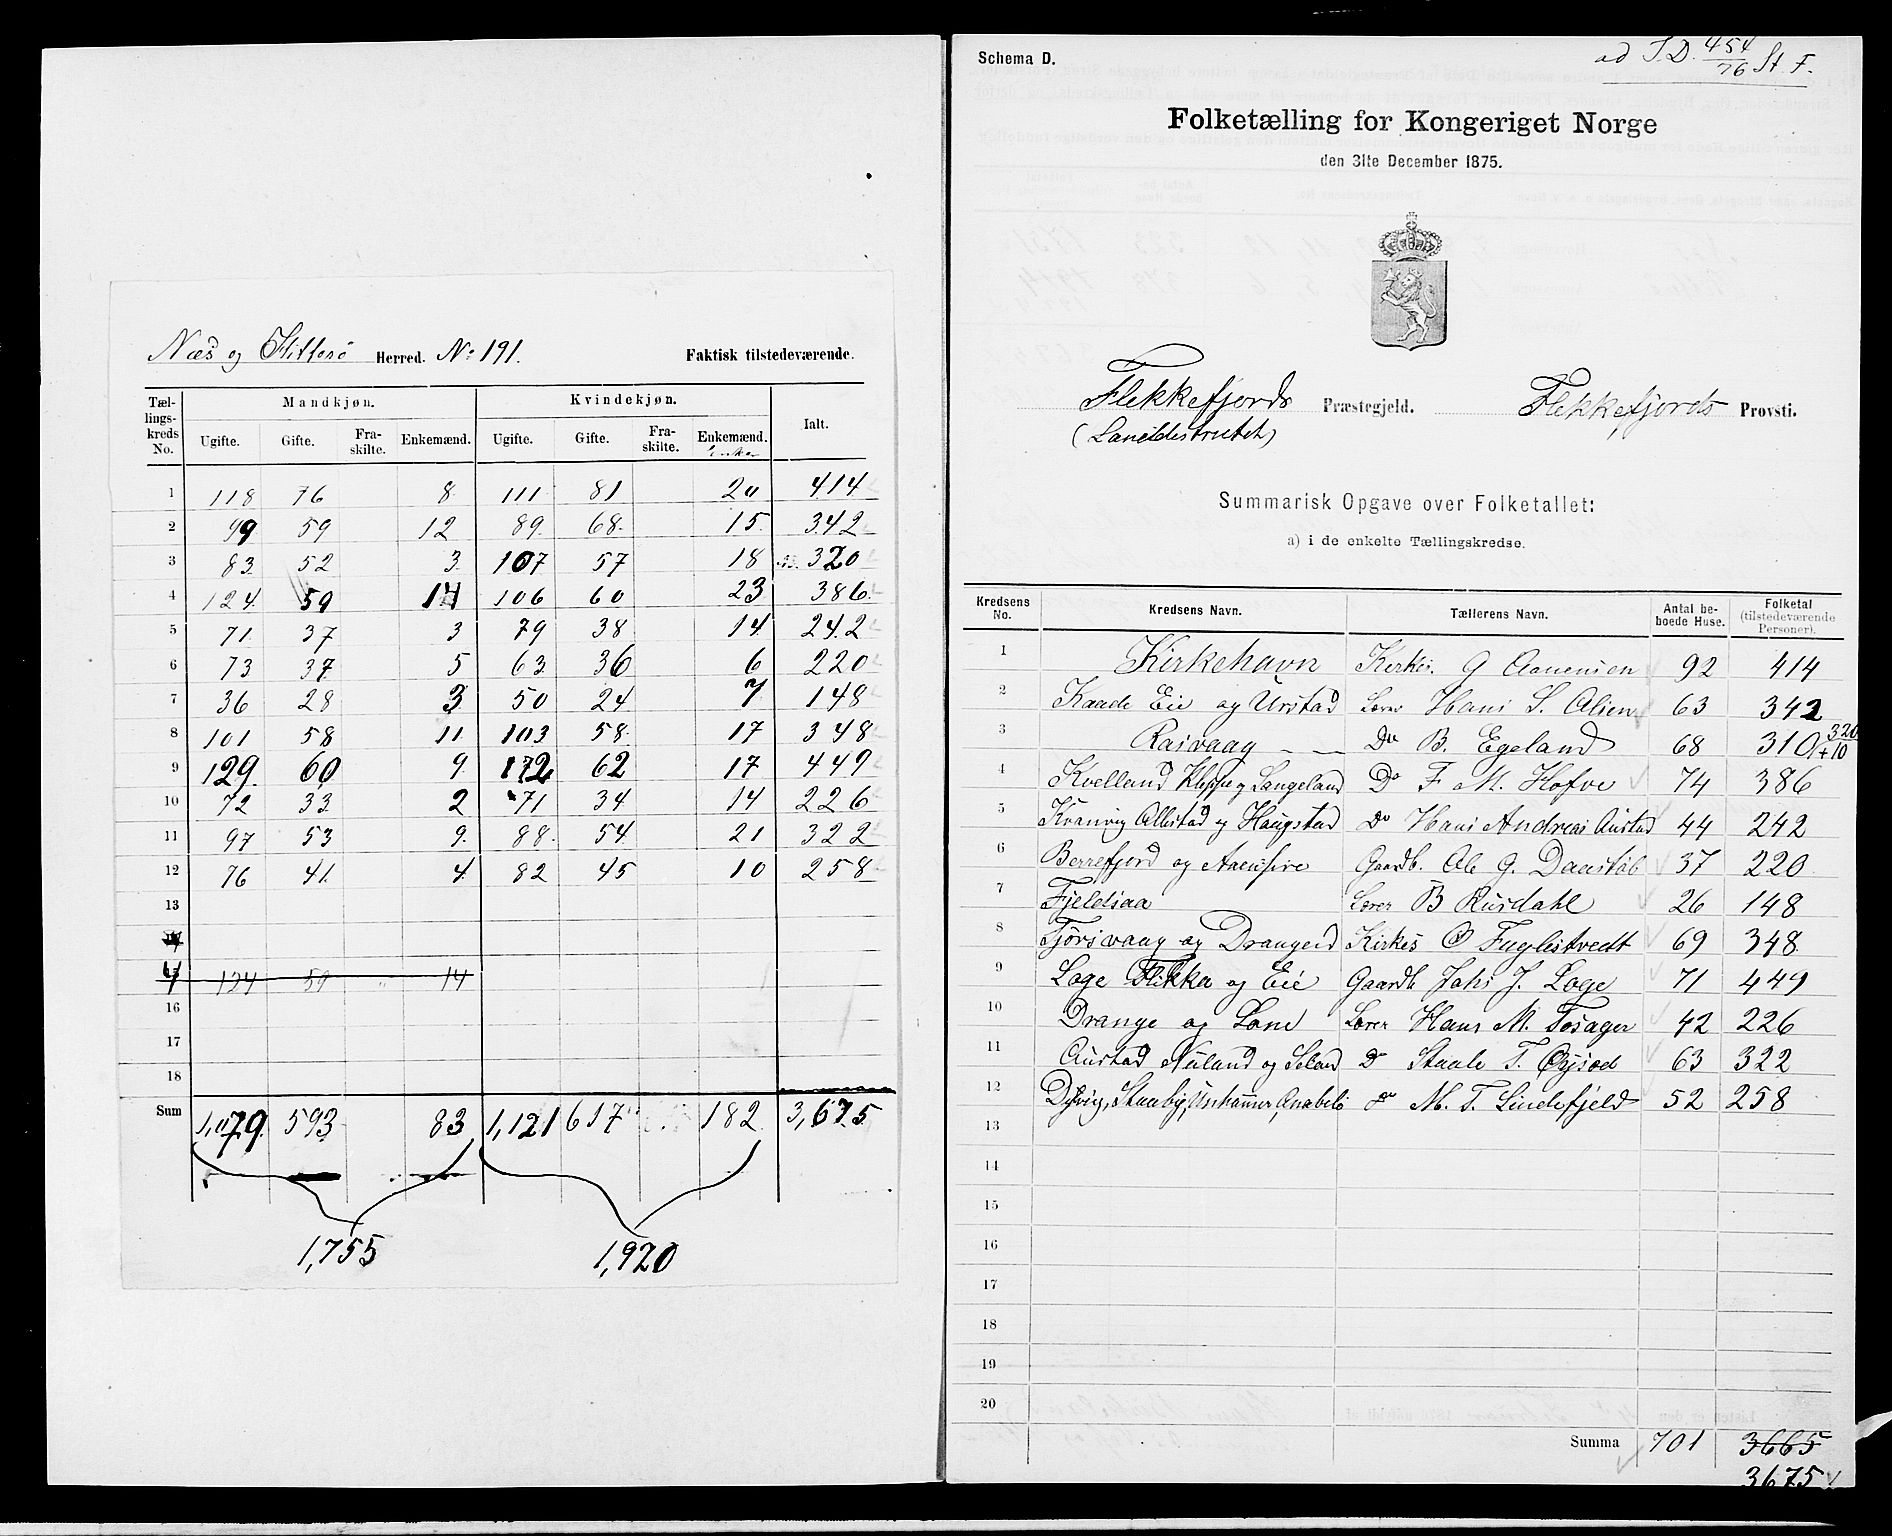 Næs og Hitterö Herred. No 191. Faktisk tilstedeværende.
Tællingskreds No. Mandkjøn. Kvindekjøn. Ialt.
Ugifte. Gifte. Fraskilte. Enkemænd. Ugifte. Gifte. Fraskilte. Enkemænd. Enker
1 118 76 8 111 81 20 414
2 99 59 12 89 68 15 342
3 83 52 3 107 57 18 320
4 124 59 14 106 60 23 386
5 71 37 3 79 38 14 242
6 73 37 5 63 36 6 220
7 36 28 3 50 24 7 148
8 101 58 11 103 58 17 348
9 129 60 9 172 62 17 449
10 72 33 2 71 34 14 226
11 97 53 9 88 54 21 322
12 76 41 4 82 45 10 258
13
124 59 " 14
16
17
18
Sum 1,079 593 83 1,121 617 182 3,675
1,755 1,920
Schema D.
ad J.D. 454/76 St. F.
Folketælling for Kongeriget Norge
den 31te December 1875.
Flekkefjords Præstegjeld. Flekkefjords Provsti.
(Landdistriktet)
Summarisk Opgave over Folketallet:
a) i de enkelte Tællingskredse.
Kredsens No. Kredsens Navn. Tællerens Navn. Antal beboede Huse. Folketal (tilstedeværende Personer).
1 Kirkehavn Kirkes. G Aanensen 92 414
2 Kaade Eie og Urstad Lærer Hans S. Olsen 63 342
3 Rasvaag Do B. Egeland 68 310 +10 320
4 Kvelland Kleppe og Langeland Do F M. Hofve 74 386
5 Kvanvig Allestad og Haugstad Do Hans Andreas Austad 44 242
6 Berrefjord og Aaensire Gaardb. Ole G. Daastöl 37 220
7 Fjeldsaa Lærer B Rusdahl 26 148
8 Tjörsvaag og Drangeid Kirkes O Fuglestvedt 69 348
9 Loge Flikka og Eie Gaardb Johs J. Loge 71 449
10 Drange og Lone Lærer Hans M. Tosager 42 226
11 Austad Nuland og Seland Do Staale T. Öysæd 63 322
12 Dybvig, Stranby, Urhammer, Anabelö do M. T. Lindefjeld 52 258
13
14
15
16
17
18
19
20
Summa 701 3665
3675